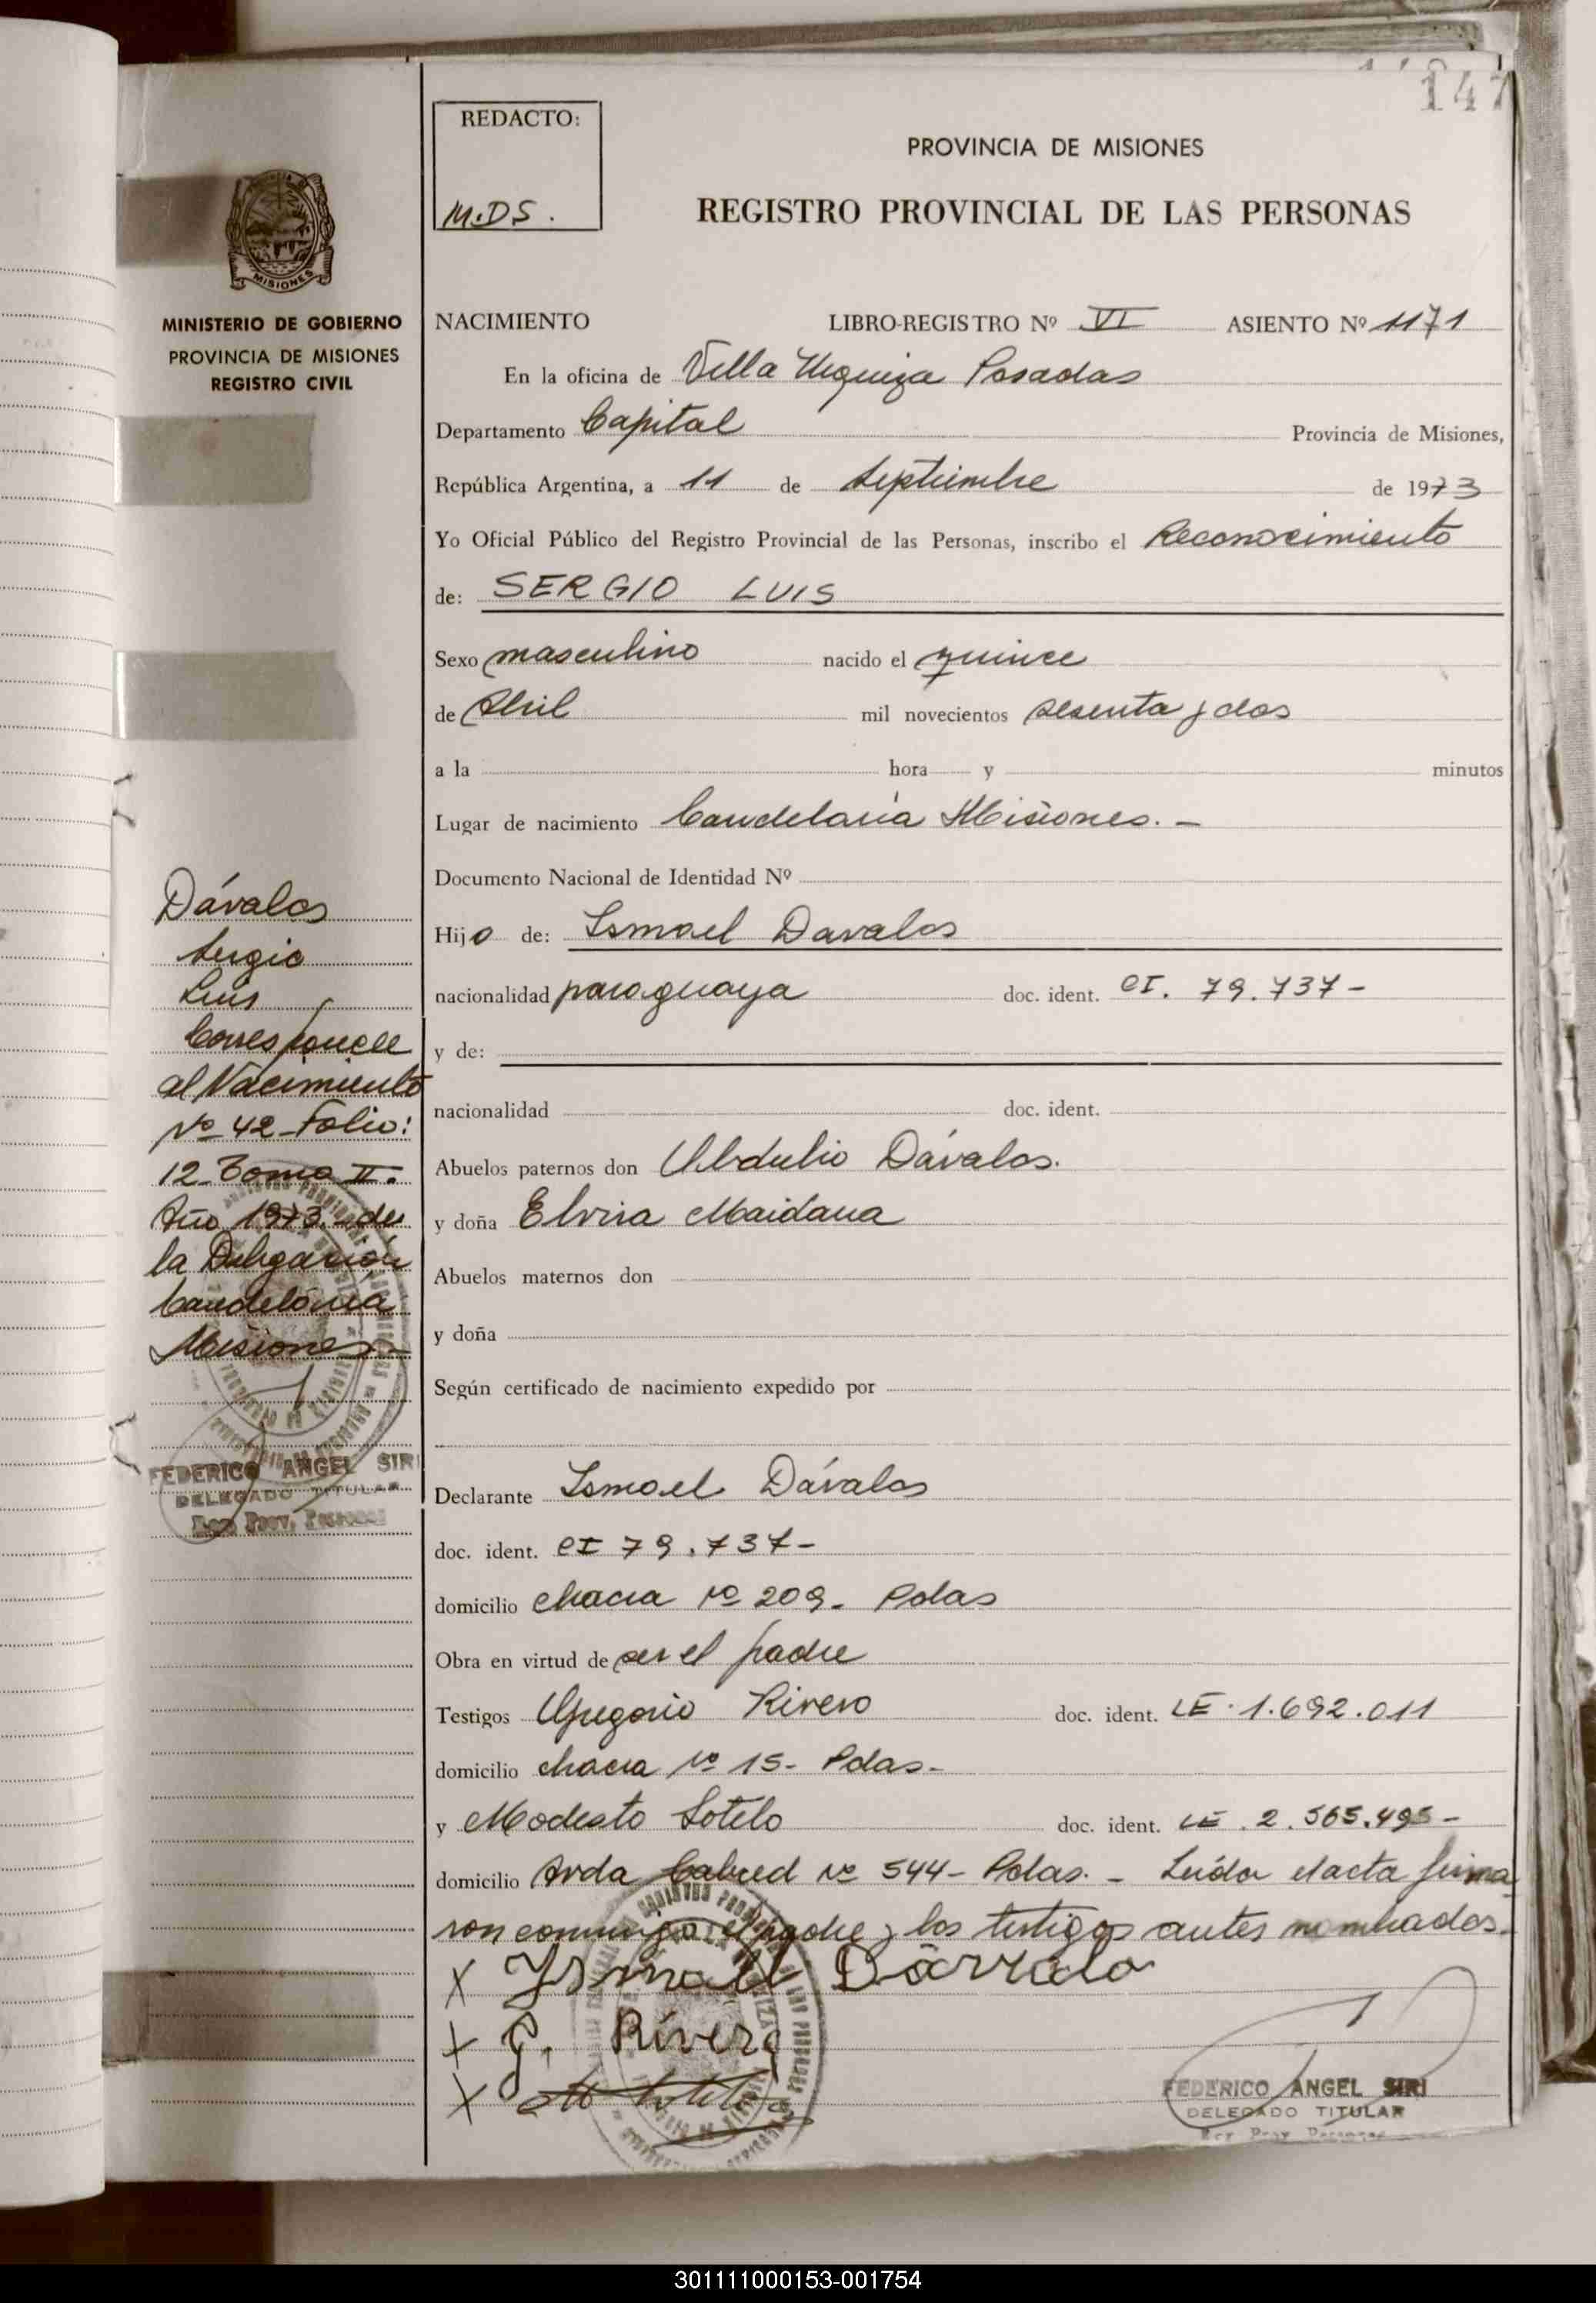 147
REDACTO:
M.DS.
PROVINCIA DE MISIONES
REGISTRO PROVINCIAL DE LAS PERSONAS
MISIONES
MINISTERIO DE GOBIERNO
PROVINCIA DE MISIONES
REGISTRO CIVIL
NACIMIENTO LIBRO-REGISTRO Nº VI ASIENTO Nº 1171
En la oficina de Villa Urquiza Posadas
Departamento Capital Provincia de Misiones,
República Argentina, a 11 de Septiembre de 1973
Yo Oficial Público del Registro Provincial de las Personas, inscribo el Reconocimiento
de: SERGIO LUIS
Sexo masculino nacido el quince
de Abril mil novecientos sesenta y dos
a la hora y minutos
Lugar de nacimiento Candelaria Misiones. -
Documento Nacional de Identidad Nº
Hijo de: Ismael Davalos
nacionalidad paraguaya doc. ident. CI. 79.737-
y de:
nacionalidad doc. ident.
Abuelos paternos don Obdulio Dávalos.
y doña Elvira Maidana
Abuelos maternos don
y doña
Según certificado de nacimiento expedido por
Declarante Ismael Dávalos
doc. ident. CI 79.737-
domicilio chacra Nº 209- Pdas
Obra en virtud de ser el padre
Testigos Gregorio Rivero doc. ident. LE. 1.692.011
domicilio chacra Nº 15- Pdas-
y Modesto Sotelo doc. ident. LE. 2.565.495-
domicilio Avda Cabred Nº 544- Pdas. - Leída el acta firma
ron conmigo el padre y los testigos antes nombrados.
X Ismael Dávalo
X G. Rivero
X Sotelo
FEDERICO ANGEL SIRI
DELEGADO TITULAR
Reg Prov Personas
Dávalos
Sergio
Luis
Corresponde
al Nacimiento
Nº 42 Folio:
12 Tomo II.
Año 1973.- de
la Delegación
Candelaria
Misiones-
FEDERICO ANGEL SIRI
DELEGADO TITULAR
Reg Prov. Personas
301111000153-001754